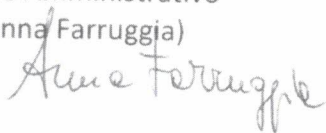 nna Farruggia)
Anna Farruggia